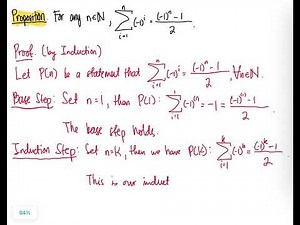 Proposition. For any n∈ℕ, \sum_{i=1}^{n} (-1)^i = \frac{(-1)^n - 1}{2}.
Proof. (by Induction)
Let P(n) be a statement that \sum_{i=1}^{n} (-1)^i = \frac{(-1)^n - 1}{2}, ∀n∈ℕ.
Base Step: Set n=1, then P(1): \sum_{i=1}^{1} (-1)^i = -1 = \frac{(-1)^1 - 1}{2}
The base step holds.
Induction Step: Set n=k, then we have P(k): \sum_{i=1}^{k} (-1)^k = \frac{(-1)^k - 1}{2}
This is our induct